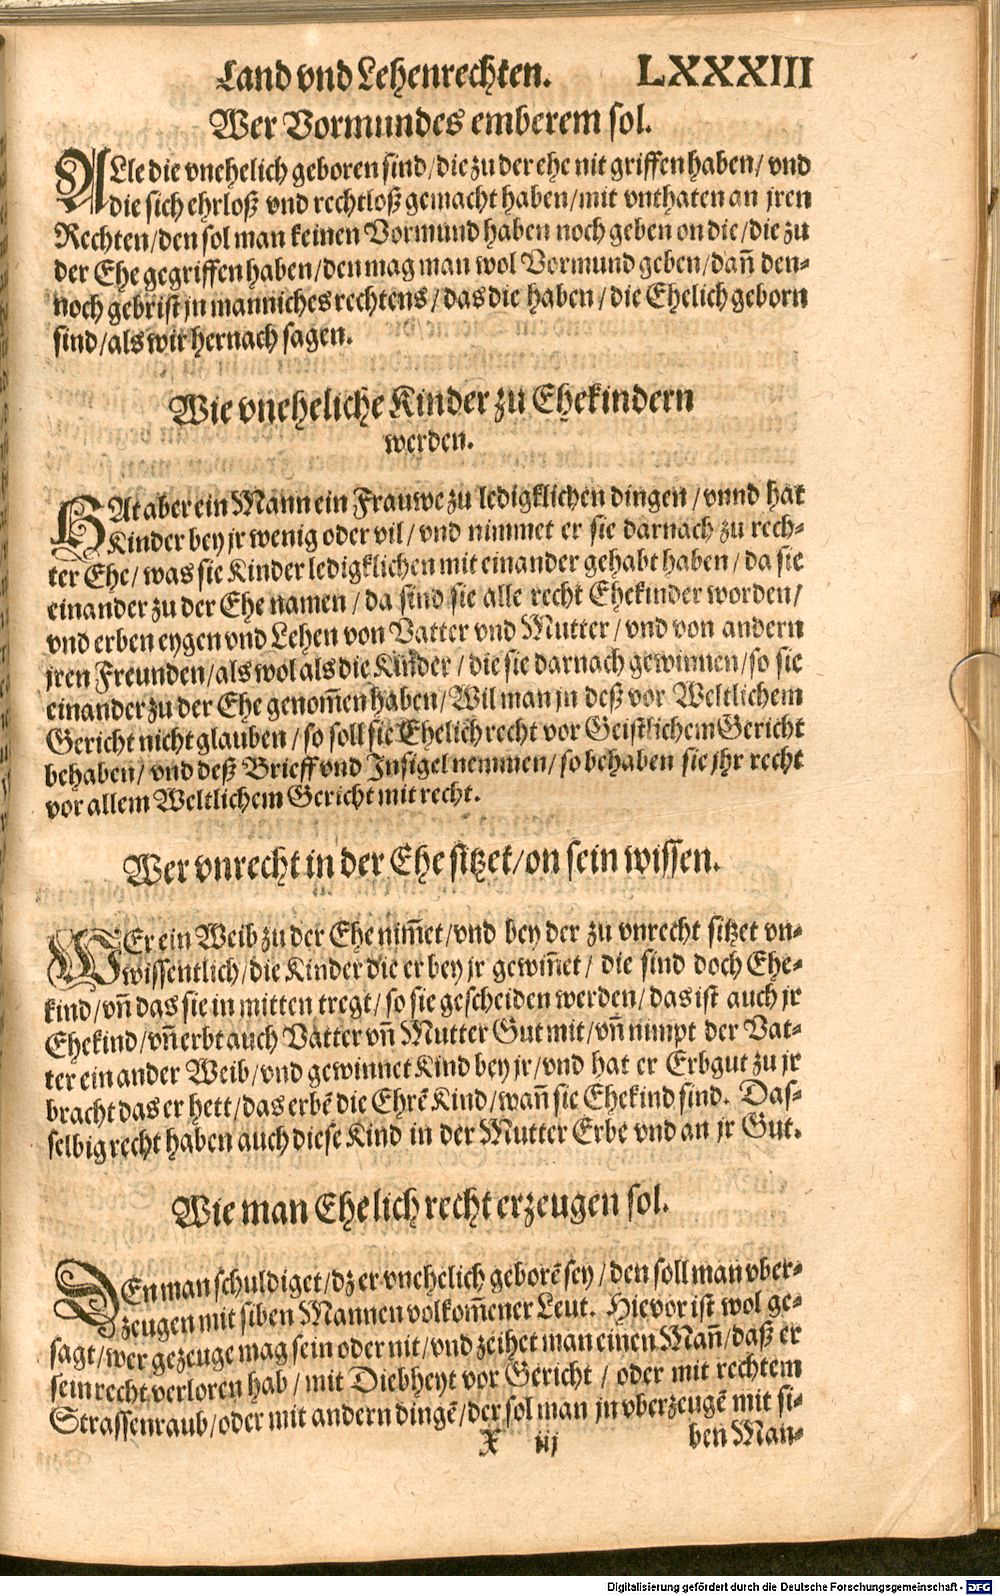 Land vnd Lehenrechten. LXXXIII
Wer Vormundes emberem sol.
ALle die vnehelich geboren sind/die zu der ehe nit griffen haben/ vnd
die sich ehrloß vnd rechtloß gemacht haben/mit vnthaten an jren
Rechten/den sol man keinen Vormund haben noch geben on die/die zu
der Ehe gegriffen haben/den mag man wol Vormund geben/dañ den-
noch gebrist jn manniches rechtens/das die haben/die Ehelich geborn
sind/als wir hernach sagen.
Wie vneheliche Kinder zu Ehekindern
werden.
HAt aber ein Mann ein Frauwe zu ledigklichen dingen/vnnd hat
Kinder bey jr wenig oder vil/vnd nimmet er sie darnach zu rech-
ter Ehe/was sie Kinder ledigklichen mit einander gehabt haben/da sie
einander zu der Ehe namen/da sind sie alle recht Ehekinder worden/
vnd erben eygen vnd Lehen von Vatter vnd Mutter/vnd von andern
jren Freunden/als wol als die Kinder/die sie darnach gewinnen/so sie
einander zu der Ehe genom̃en haben/Wil man jn deß vor Weltlichem
Gericht nicht glauben/so soll sie Ehelich recht vor Geistlichem Gericht
behaben/vnd deß Brieff vnd Insigel nemmen/so behaben sie jhr recht
vor allem Weltlichem Gericht mit recht.
Wer vnrecht in der Ehe sitzet/on sein wissen.
WEr ein Weib zu der Ehe nim̃et/vnd bey der zu vnrecht sitzet vn-
wissentlich/die Kinder die er bey jr gewiñet/ die sind doch Ehe-
kind/vñ das sie in mitten tregt/so sie gescheiden werden/das ist auch jr
Ehekind/vñ erbt auch Vatter vñ Mutter Gut mit/vñ nimpt der Vat-
ter ein ander Weib/vnd gewinnet Kind bey jr/vnd hat er Erbgut zu jr
bracht das er hett/das erbẽ die Ehrẽ Kind/wañ sie Ehekind sind. Das-
selbig recht haben auch diese Kind in der Mutter Erbe vnd an jr Gut.
Wie man Ehelich recht erzeugen sol.
DEn man schuldiget/dz er vnehelich geborẽ sey/den soll man vber-
zeugen mit siben Mannen volkom̃ener Leut. Hievor ist wol ge-
sagt/wer gezeuge mag sein oder nit/vnd zeihet man einen Mañ/daß er
sein recht verloren hab/mit Diebheyt vor Gericht/oder mit rechtem
Strassenraub/oder mit andern dingẽ/der sol man jn vberzeugẽ mit si-
X iij ben Man-
Digitalisierung gefördert durch die Deutsche Forschungsgemeinschaft - DFG